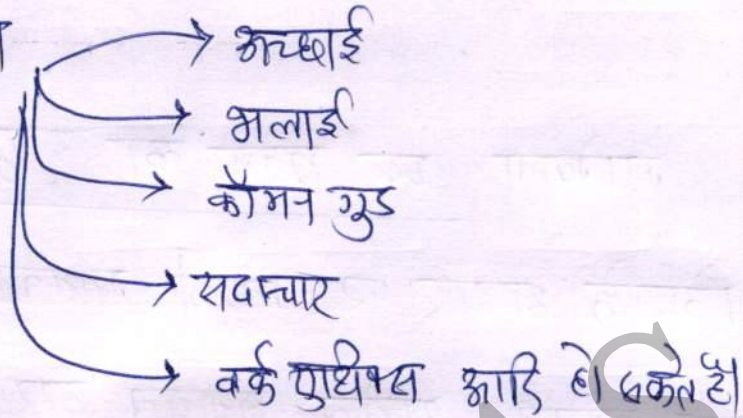 अच्छाई
भलाई
कौमन गुड
सदाचार
वर्क एथिक्स आदि हो सकते हैं।